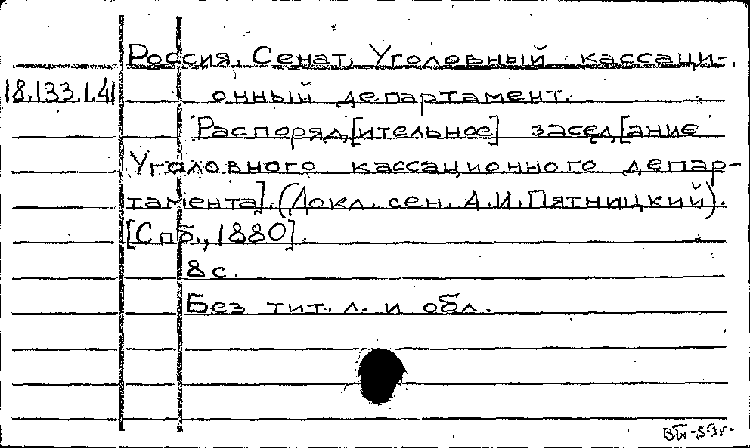 Россия. Сенат. Уголовный кассаци-
18.133.1.41 онный департамент.
Распоряд[ительное] засед[ание
Уголовного кассационного депар-
тамента]. (Докл. сен. А.И.Пятницкий).
[Спб., 1880].
8 с.
Без тит. л. и обл.